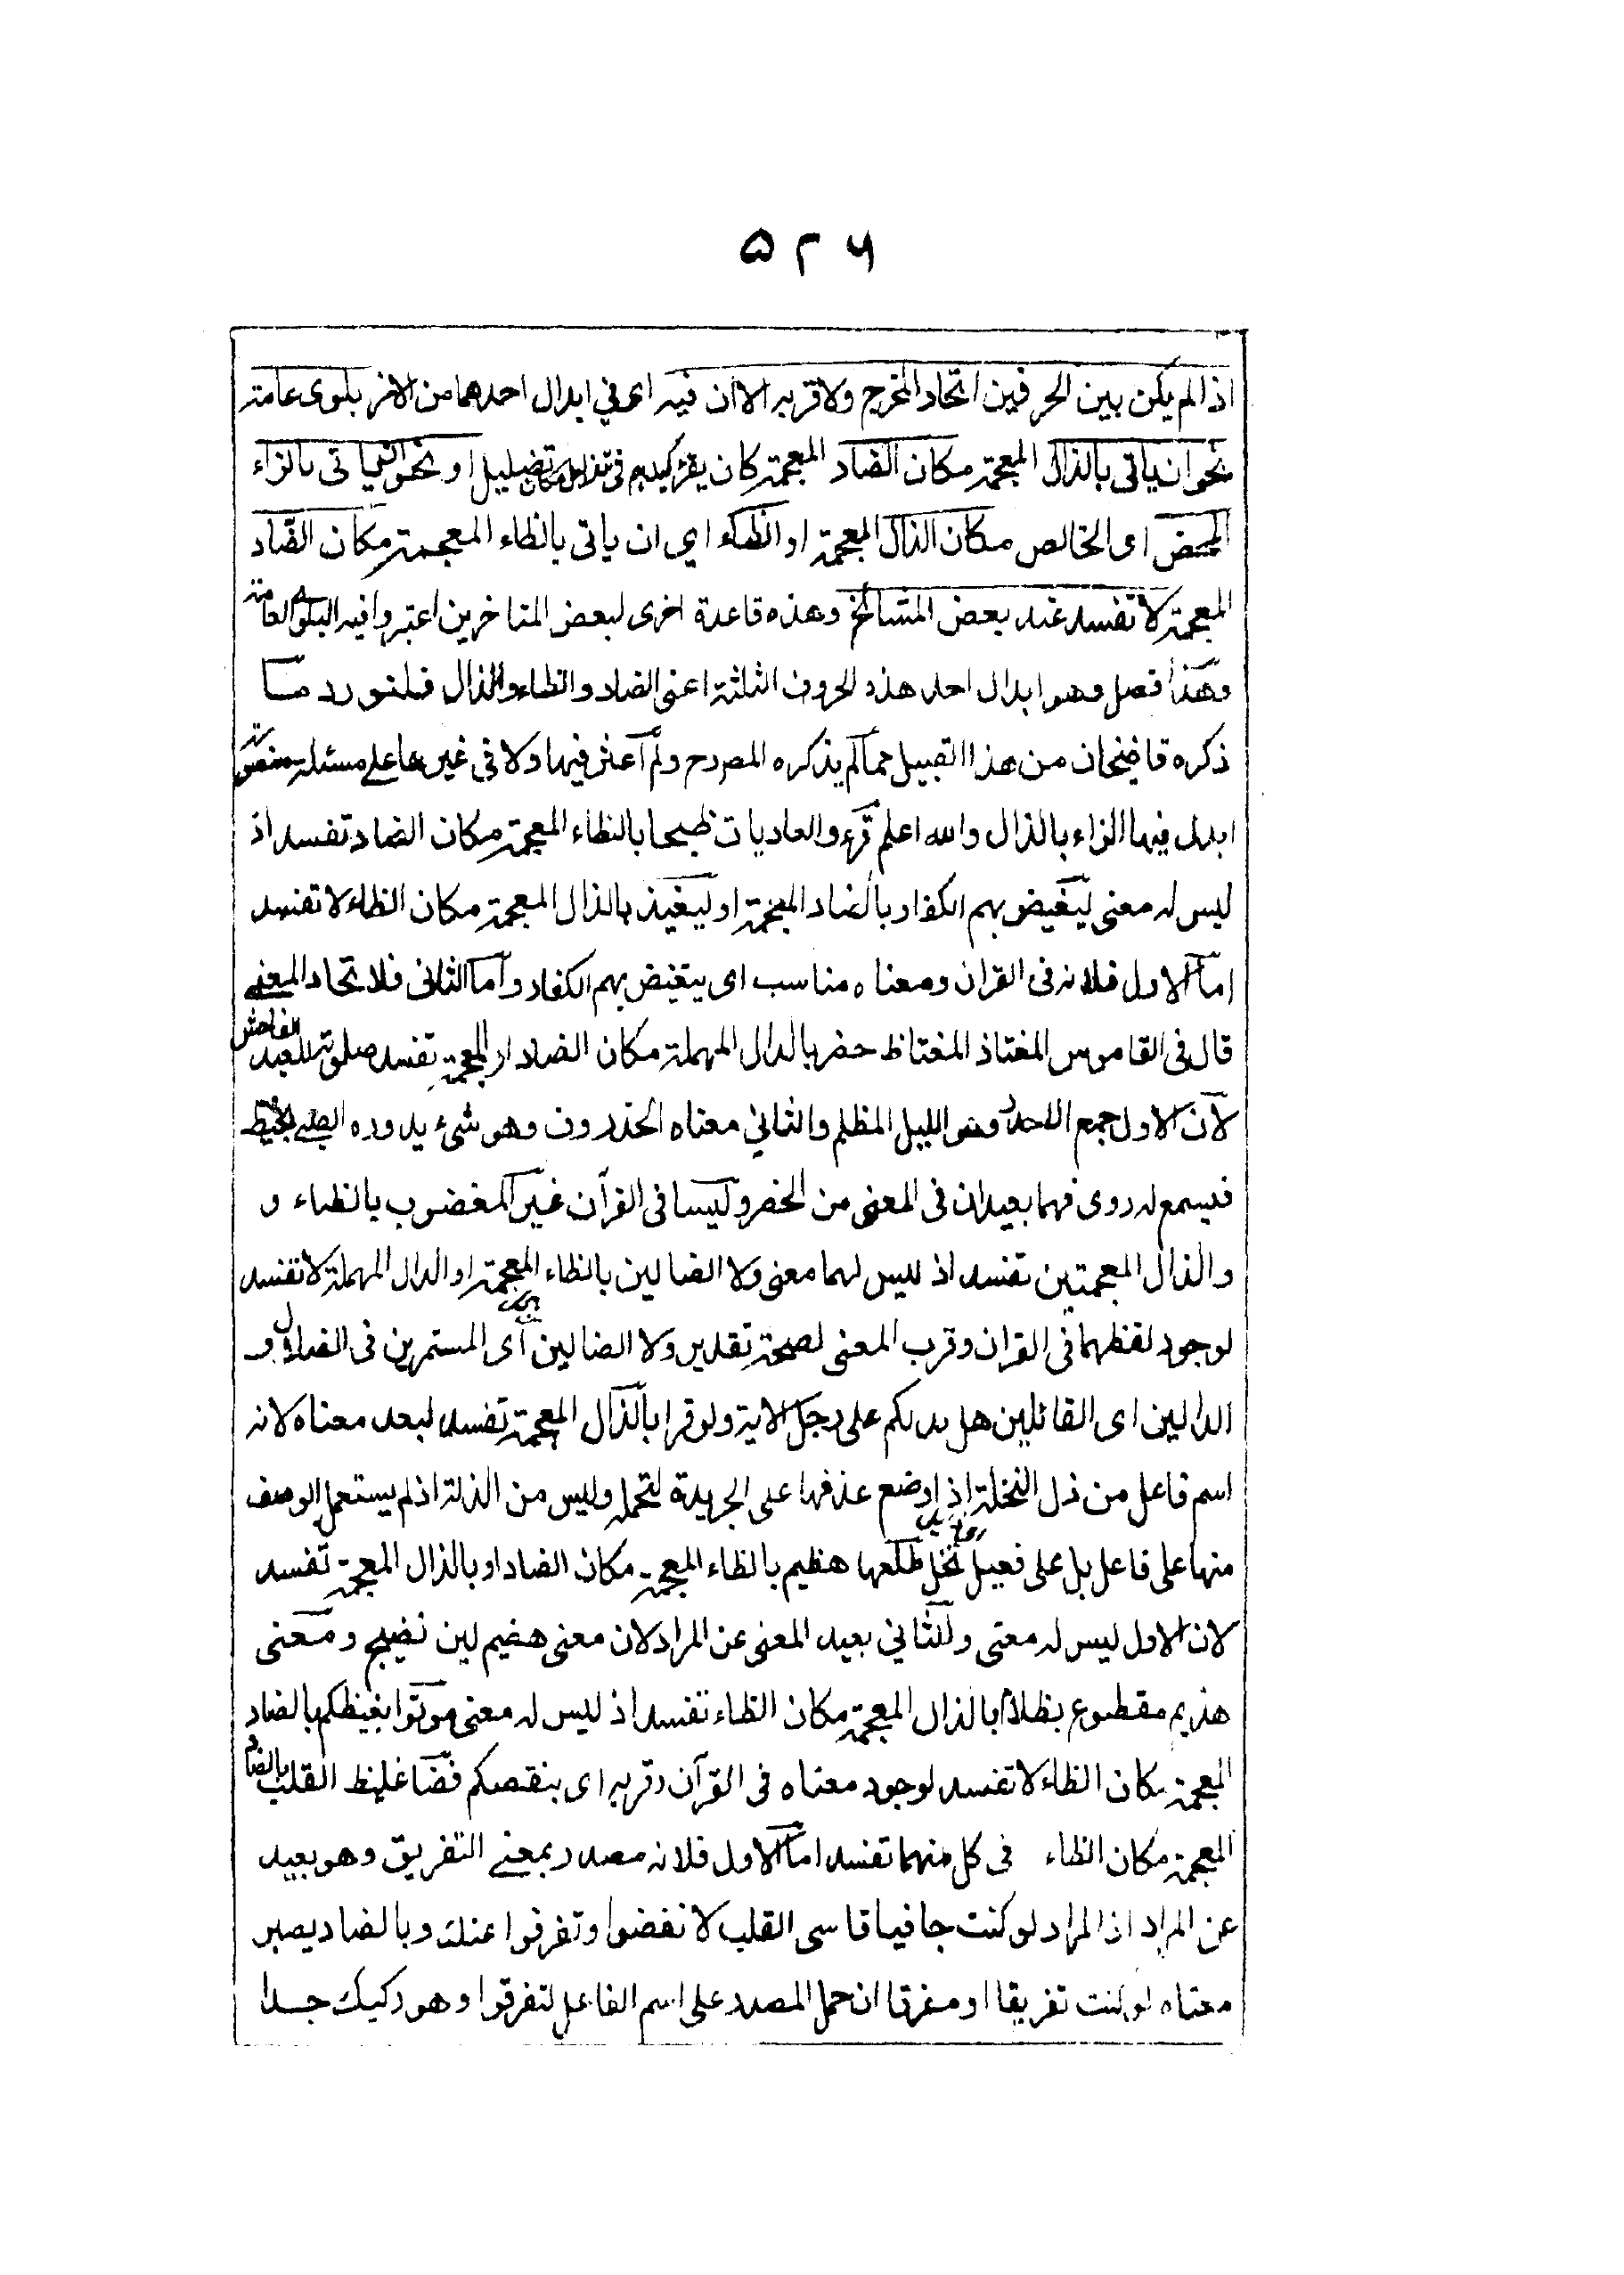 ۵۲۶
اذا لم يكن بين الحرفين اتحاد المخرج ولا قربه الا ان فيه اى في ابدال احدهما من الاخر بلوى عامة
نحو ان ياتى بالذال المعجمة مكان الضاد المعجمة كان يقرأ كيدهم فى تذليل مكان تضليل او نحو ان ياتى بالزاء
المحض اى الخالص مكان الذال المعجمة او الظاء اي ان ياتى بالظاء المعجمة مكان الضاد
المعجمة لا تفسد عند بعض المشائخ وهذه قاعدة اخرى لبعض المتاخرين اعتبروا فيه البلوى العامة
وهذا فصل وهو ابدال احد هذه الحروف الثلثة اعنى الضاد والظاء والذال فلنورد ما
ذكره قاضيخان من هذا القبيل مما لم يذكره المصرح ولم اعثر فيها ولا فى غيرها على مسئلة
ابدل فيها الزاء بالذال والله اعلم قرء والعاديات ظبحا بالظاء المعجمة مكان الضاد تفسد اذ
ليس له معنى ليغيض بهم الكفار بالضاد المعجمة او ليغيذ بالذال المعجمة مكان الظاء لا تفسد
اما الاول فلانه فى القران ومعناه مناسب اى يتغيض بهم الكفار واما الثانى فلاتحاد المعنى
قال فى القاموس المغتاذ المغتاظ حضر بالدال المهملة مكان الضاد او المعجمة تفسد صلوته للبعد الفاحش
لان الاول جمع وهو الليل المظلم والثاني معناه الخذروف وهو شىء يدوره الصبى بخيط
فيسمع له دوى فهما بعيدان فى المعنى من الخضر وليسا فى القرآن غير المغضوب بالظاء و
والذال المعجمتين تفسد اذ ليس لهما معنى ولا الضالين بالظاء المعجمة او الدال المهملة لا تفسد
لوجود لفظهما فى القران وقرب المعنى لصحة تقدير ولا الضالين اى المستمرين فى الضلال و
الدالين اى القائلين هل ندلكم على رجل الاية ولو قرا بالذال المعجمة تفسد لبعد معناه لانه
اسم فاعل من ذل النخلة اذا وضع عذقها على الجريدة لتحمله وليس من الذلة اذ لم يستعمل الوصف
منها على فاعل بل على فعيل نخل طلعها هظيم بالظاء المعجمة مكان الضاد او بالذال المعجمة تفسد
لان الاول ليس له معنى وللثاني بعيد المعنى عن المراد لان معنى هضيم لين نضيج ومعنى
هذيم مقطوع بظلام بالذال المعجمة مكان الظاء تفسد اذ ليس له معنى موتوا بغيظكم بالضاد
المعجمة مكان الظاء لا تفسد لوجود معناه فى القرآن وقربه اى بنقصكم فضا غليظ القلب بالضاد
المعجمة مكان الظاء فى كل منهما تفسد اما الاول فلانه مصدر بمعنى التفريق وهو بعيد
عن المراد اذ المراد لو كنت جافيا قاسى القلب لانفضوا وتفرقوا عنك وبالضاد يصير
معناه لو كنت تفريقا او مفرقا ان حمل المصدر على اسم الفاعل لتفرقوا وهو ركيك جدا